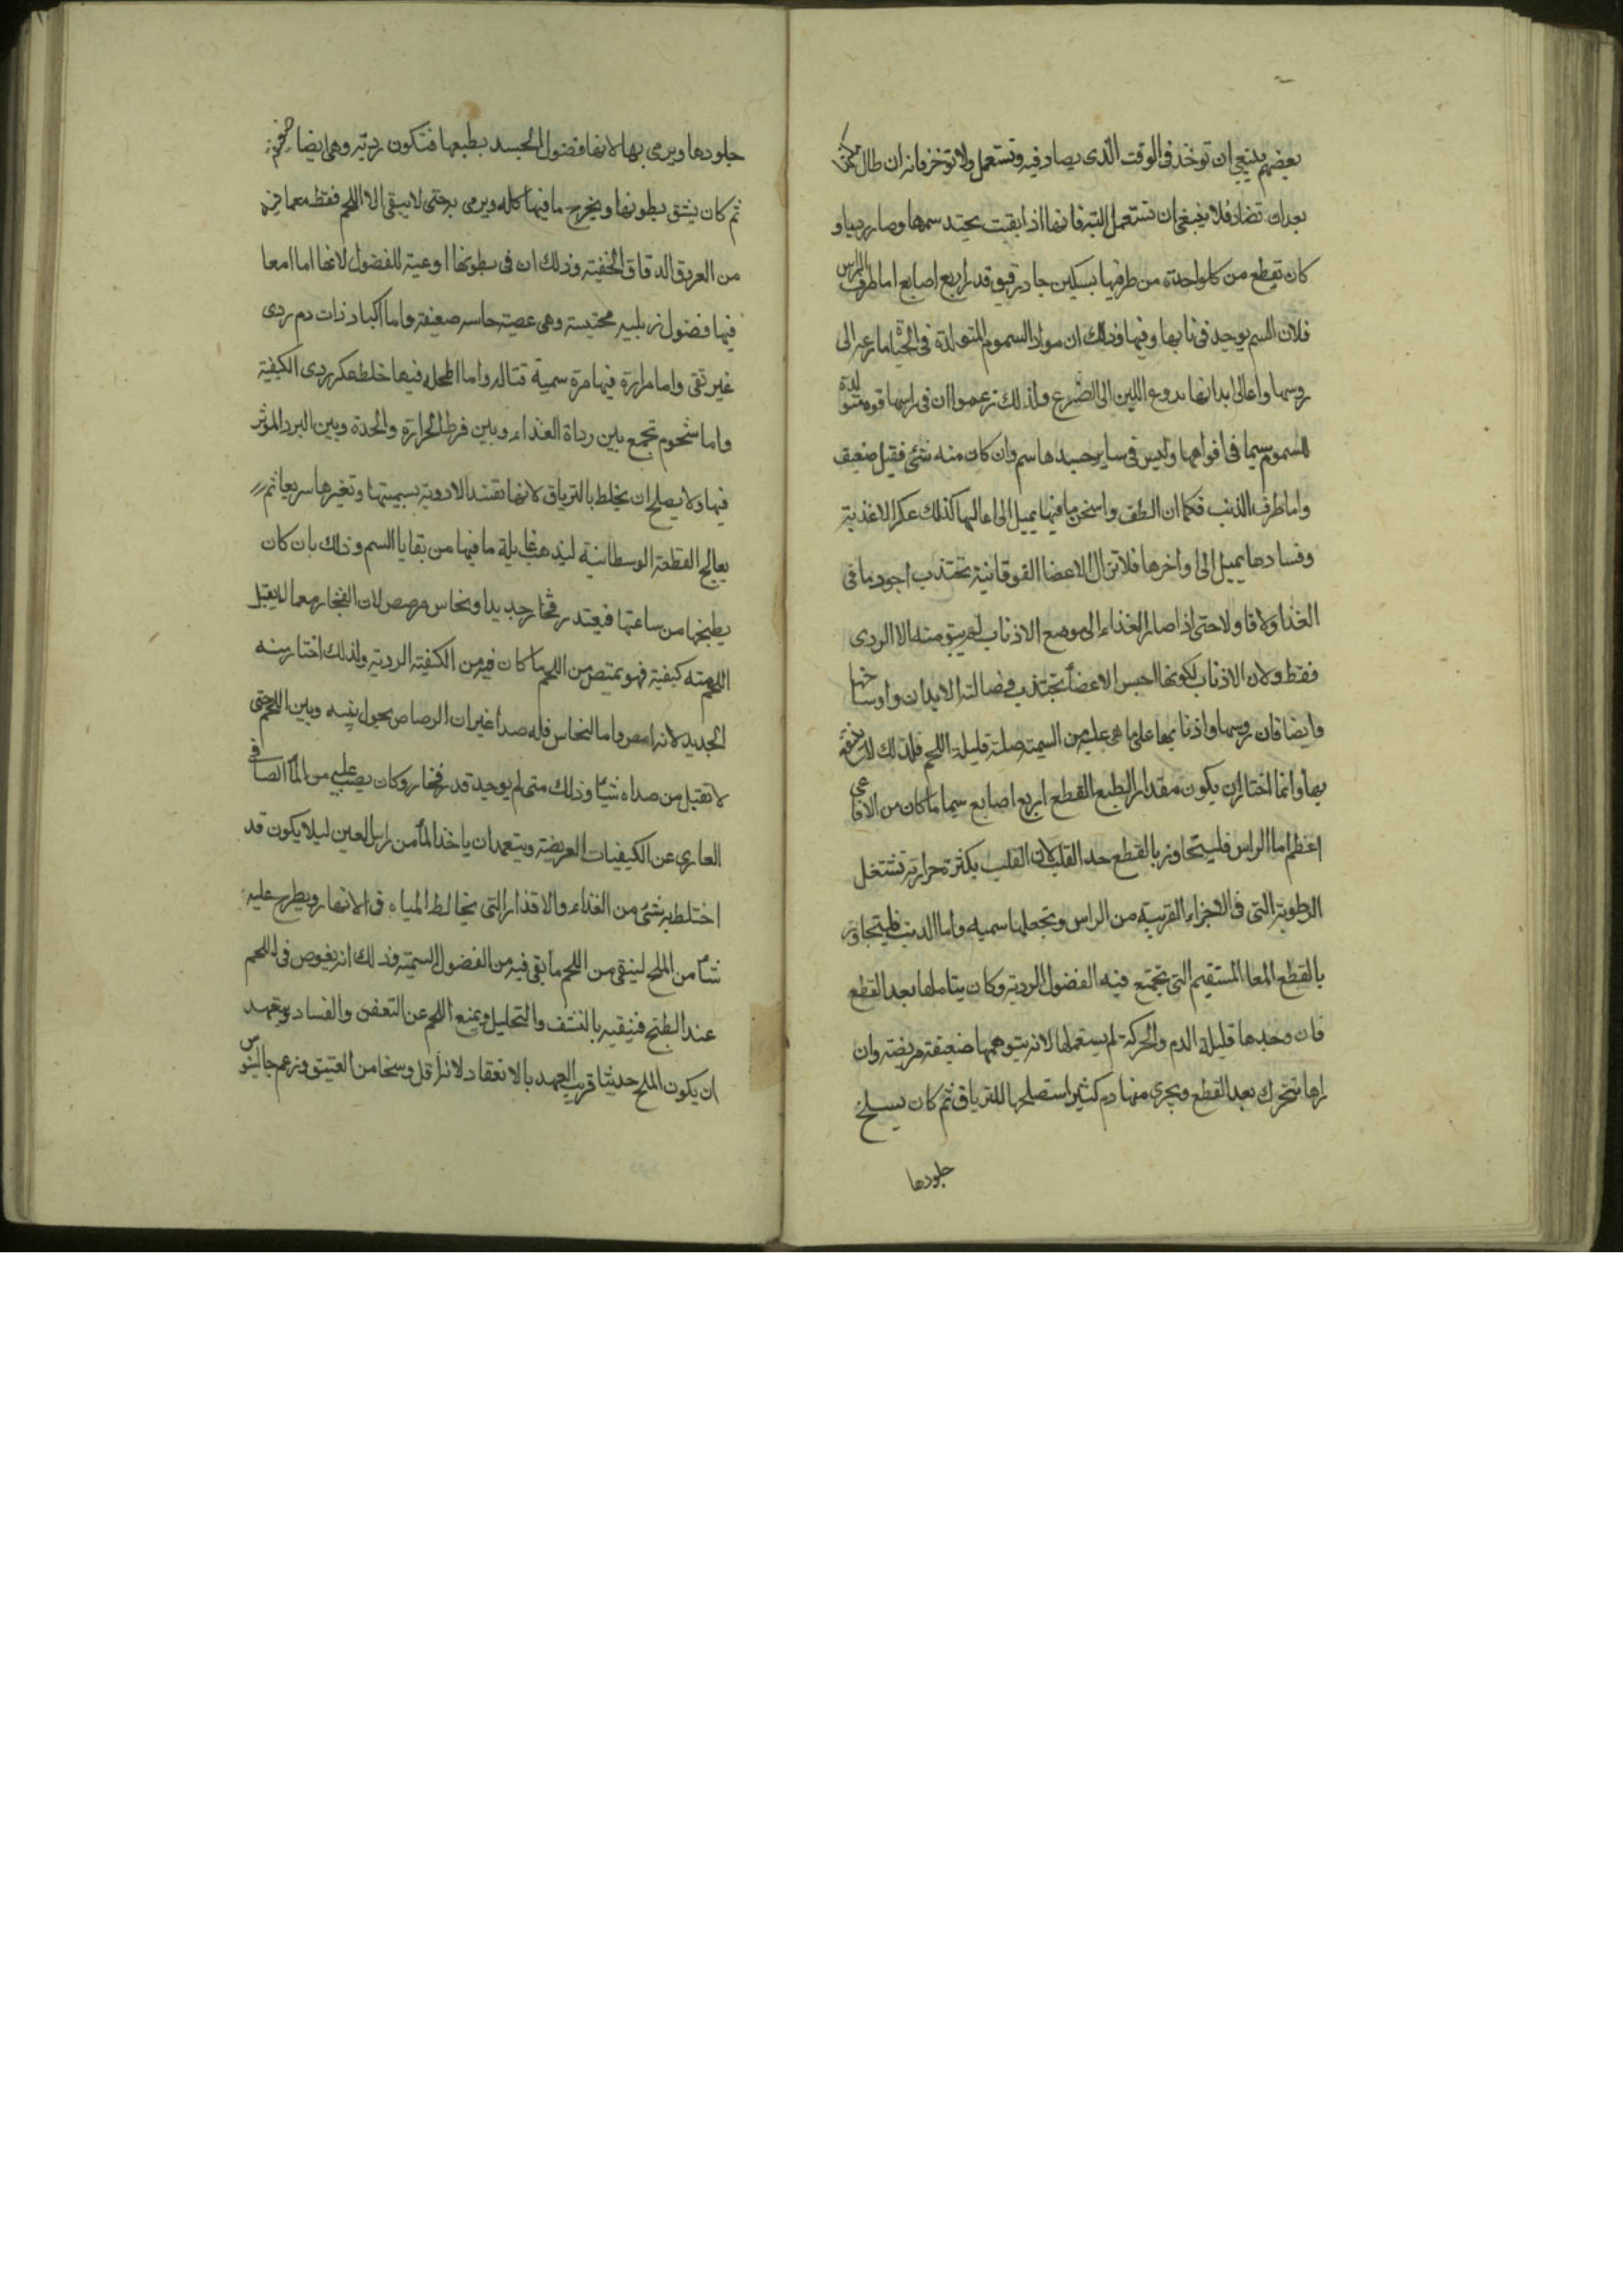 بعضهم ينبغى ان توخذ فى الوقت الذى يصاد فيه وتستعمل ولا توخر فانه ان طال مكثها
بعد ان تصاد فلا ينبغى ان تستعمل البتة فانها اذا بقيت يحتد سمها وصار رديا و
كان تقطع من كل واحدة من طرفيها بسكين حاد رقيق قدر اربع اصابع اما طرف الراس
فلان السم يوجد فى نابها وفيها وذلك ان مواد السموم المتولدة فى الحياة ما رعه الى
روسها واعالى ابدانها بدوع اللبن الى الضرع ولذلك زعموا ان فى راسها قوه متولدة
للسموم سيما فى افواهها وليس فى ساير جسدها سم وان كان منه شئ فقيل ضعيف
واما طرف الذنب فكما ان الطف واسخن ما فيها يميل الى اعاليها كذلك عكر الاغذية
وفسادها يميل الى اواخرها فلا تزال الاعضا الفوقانية تجتذب اجود ما فى
الغذا اولا فاولا حتى اذا صار الغذاء الى موضع الاذناب لم يبق منه الا الردى
فقط ولان الاذناب لكونها اخس الاعضا تجتذب فضالة الابدان واوساخها
وايضا فان روسها واذنابها على ما هى عليه من السمية صلبة قليلة اللحم فلذلك لا
بها وانما اختار ان يكون مقدار القطع اربع اصابع سيما ما كان من الافاعى
اعظم اما الراس فليتجاوز بالقطع حد القلب لان القلب بكثرة حرارته تشتغل
الرطوبة التى فى الاجزاء القريبة من الراس وتجعلها سميه واما الذنب فليتجاوز
بالقطع المعا المستقيم التى تجتمع فيه الفضول الردية وكان يتاملها بعد القطع
فان وجدها قليلة الدم والحركة لم يستعملها لانه يتوهمها ضعيفة مريضة وان
راها تتحرك بعد القطع ويجرى منها دم كثير استصلحها للترياق ثم كان يسلخ
جلودها
جلودها ويرمى بها لانها فضول الجسد بطبعها فتكون ردية وهى ايضا
ثم كان يشق بطونها ويخرج ما فيها كله ويرمى به حتى لا يبقى الا اللحم فقط معما فيه
من العروق الدقاق الخفية وذلك ان فى بطونها اوعية للفضول لانها اما امعا
فيها فضول زبلييه محتبسة وهى عصبية حاسه ضعيفة واما اكباد ذات دم ردى
غير نقى واما مرارة فيها مرة سمية قتاله واما اطحله فيها خلط عكر ردى الكيفية
واما شحوم تجمع بين رداة الغذاء وبين فرط الحرارة والحدة وبين البرد الموثر
فيها ولا يصلح ان يخلط بالترياق لانها تفسد الادوية بسميتها وتغيرها سريعا ثم
يعالج القطعة الوسطانية ليذهب غايلة ما فيها من بقايا السم وذلك بان كان
يطبخها من ساعتها فى قدر فخار جديد او نحاس مرصص لان الفخار مما لا يقبل
اللحم منه كيفية فهو يمتص من اللحم ما كان فيه من الكيفية الردية ولذلك اختار منه
الجديد لانه امص واما النحاس فله صدا غير ان الرصاص يحول بينه وبين اللحم حتى
لا تقبل من صداه شيا وذلك متى لم يوجد قدر فخار وكان يصب عليه من الما الصافى
العارى عن الكيفيات العريضة ويتعمد ان ياخذ الما من راس العين ليلا يكون قد
اختلط به شئ من الغذاء والاقذار التى تخالط المياه فى الانهار ويطرح عليه
شيا من الملح لينقى من اللحم ما بقى فيه من الفضول السمية وذلك انه يغوص فى اللحم
عند الطبخ فينقيه بالنشف والتحليل ويمنع اللحم عن التعفن والفساد ويتعهد
ان يكون الملح حديثا قريب العهد بالانعقاد لانه اقل وسخا من العتيق وزعم جالينوس